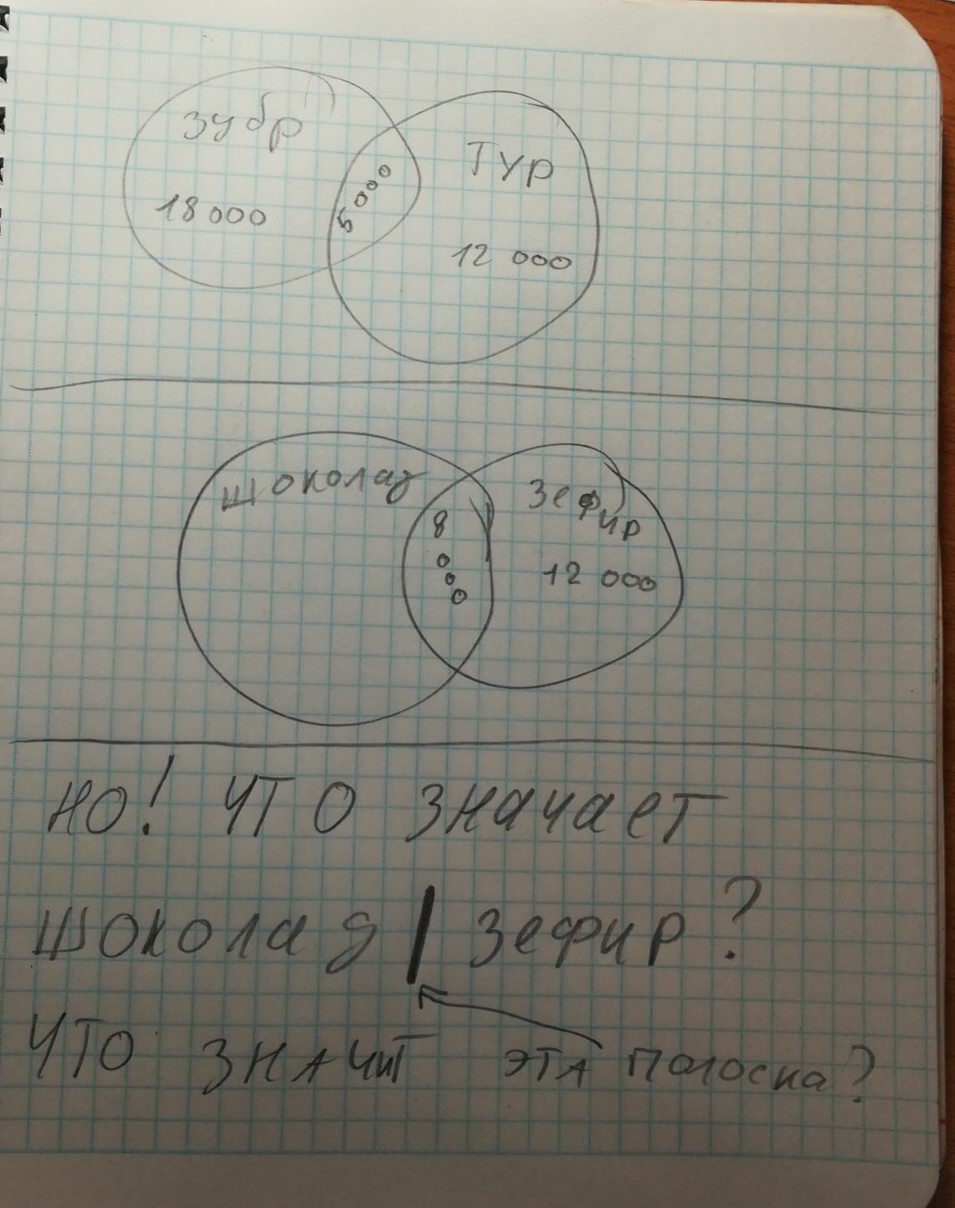 зубр
18 000
5000
ТУР
12 000
шоколад
8000
Зефир
12 000
НО! ЧТО значает
шоколад | зефир?
что значит эта полоска?